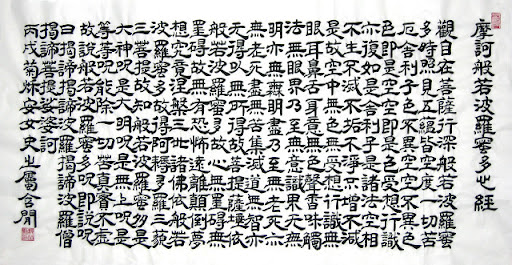 摩訶般若波羅蜜多心經
觀自在菩薩行深般若波羅蜜
多時照見五蘊皆空度一切苦
厄舍利子色不異空空不異色
色即是空空即是色受想行識
亦復如是舍利子是諸法空相
不生不滅不垢不淨不增不減
是故空中無色無受想行識無
眼耳鼻舌身意無色聲香味觸
法無眼界乃至無意識界無無
明亦無無明盡乃至無老死亦
無老死盡無苦集滅道無智亦
無得以無所得故菩提薩埵依
般若波羅蜜多故心無罣礙無
罣礙故無有恐怖遠離顛倒夢
想究竟涅槃三世諸佛依般若
波羅蜜多故得阿耨多羅三藐
三菩提故知般若波羅蜜多是
大神呪是大明呪是無上呪是
等等呪能除一切苦真實不虛
故說般若波羅蜜多呪即說呪
曰揭諦揭諦波羅揭諦波羅僧
揭諦菩提娑婆訶
丙戌菊秋安女史之屬 含閒